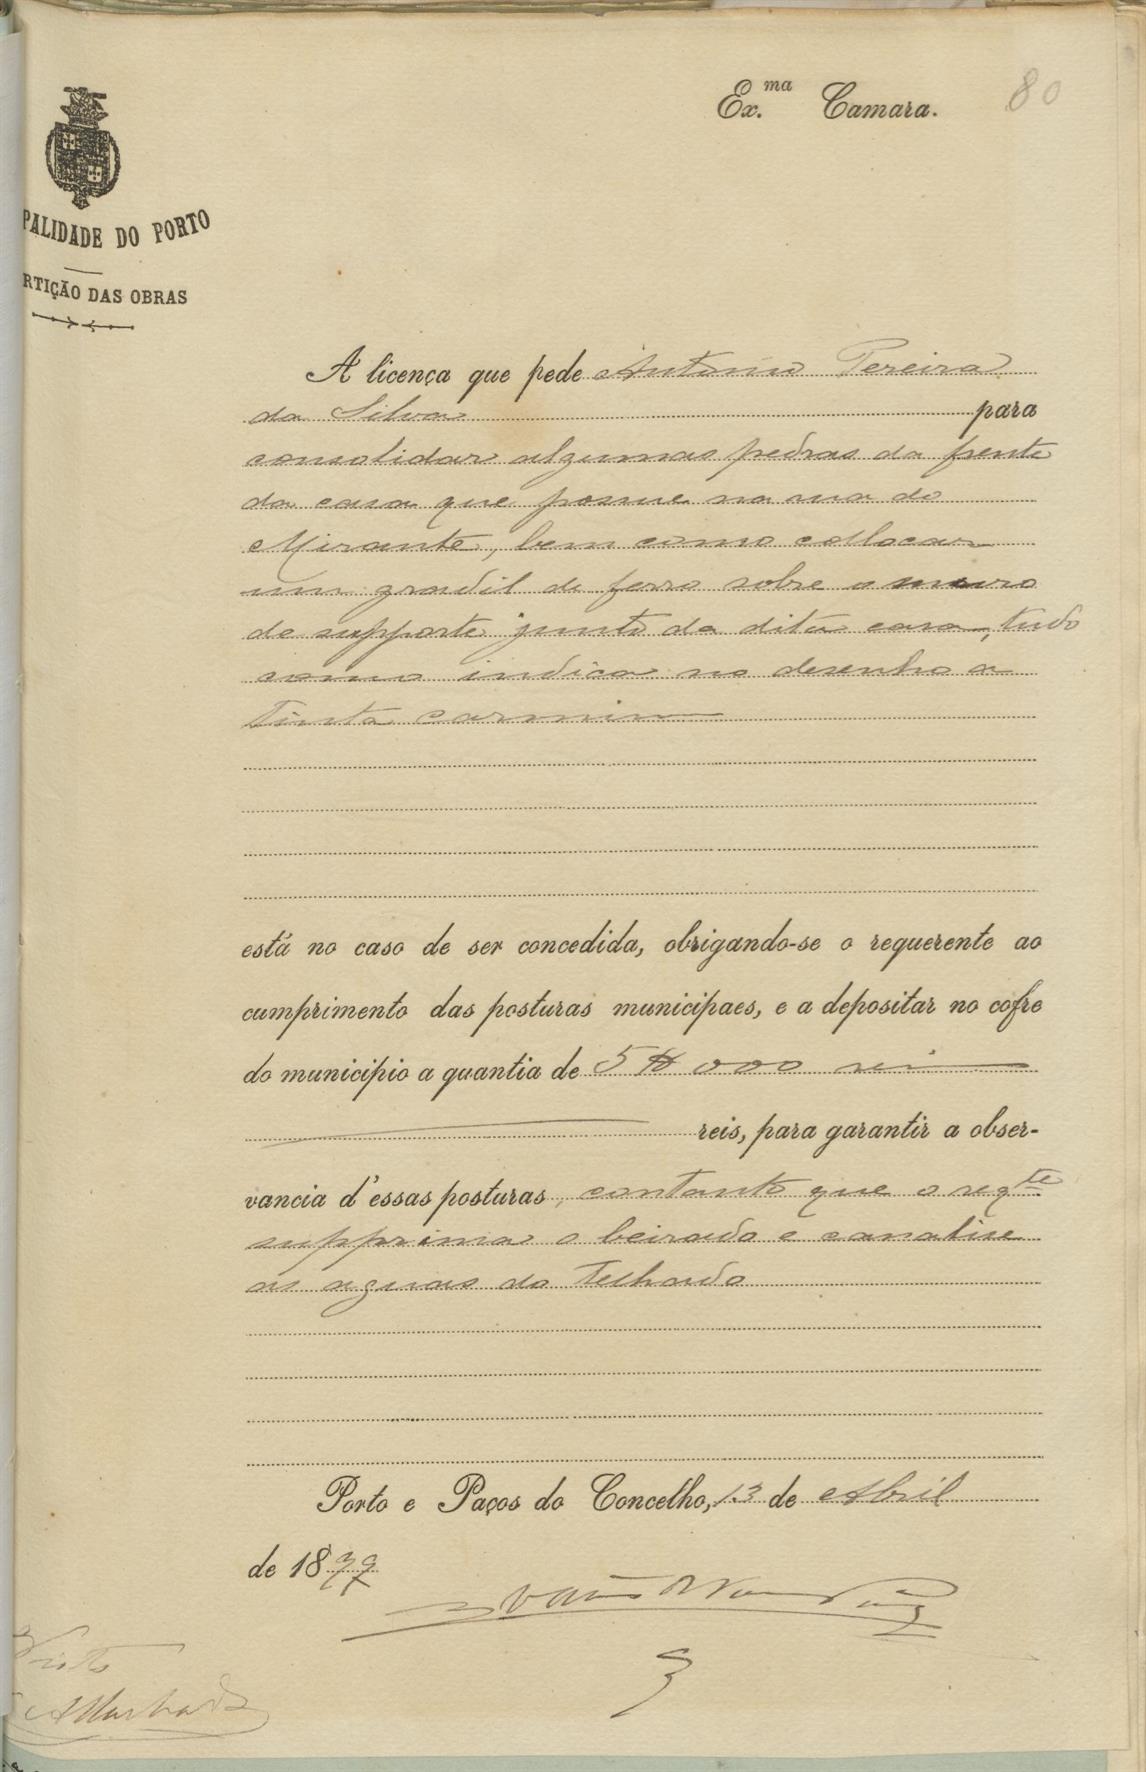 Ex.ma Camara.
80
PALIDADE DO PORTO
RTIÇÃO DAS OBRAS
A licença que pede Antonio Pereira
da Silva para
consolidar algumas pedras da frente
da casa que possue na rua do
Mirante, bem como collocar
um gradil de ferro sobre o muro
de supporte junto da dita casa, tudo
como indica no desenho a
tinta carmim
está no caso de ser concedida, obrigando-se o requerente ao
cumprimento das posturas municipaes, e a depositar no cofre
do municipio a quantia de 5$000 reis
reis, para garantir a obser-
vancia d'essas posturas, contanto que o reqte
supprima o beirado e canalise
as aguas do telhado
Porto e Paços do Concelho, 13 de Abril
de 18
Visto
AMachado